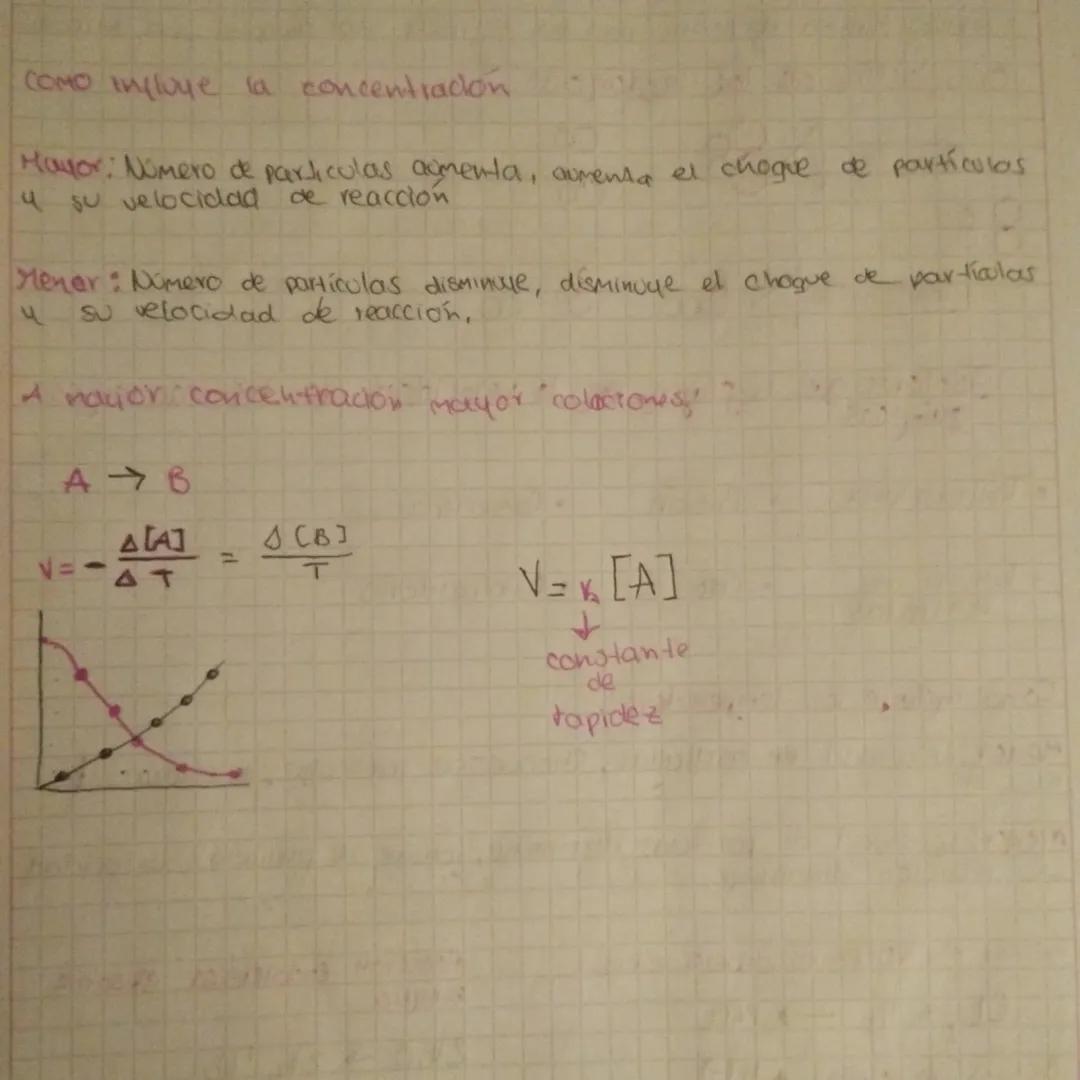 como influye la concentración
Mayor: Número de partículas aumenta, aumenta el choque de partículas
y su velocidad de reacción
Menor: Número de partículas disminuye, disminuye el choque de partículas
y su velocidad de reacción.
A mayor concentración mayor "colaciones"
A → B
V = - Δ[A] / Δ T = Δ [B] / T
V = k [A]
↓
constante
de
rapidez